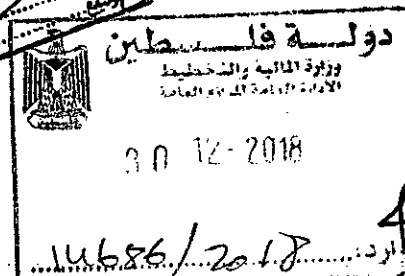 دولة فلسطين
وزارة المالية والتخطيط
الادارة العامة للوازم العامة
30 12-2018
وارد: 14686/2018